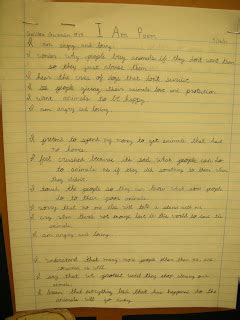 I Am Poem
I am angry and loving.
I wonder why people buy animals if they dont want them
so they just abuse them.
I hear the cries of dogs that dont survive.
I see people giving their animals love and protection.
I want animals to be happy.
I am angry and loving.
I pretend to spend my money to get animals that have
no homes.
I feel crushed because its sad what people can do
to animals as if they did something to them when
they didnt.
I touch the people so they can know what some people
do to their poor animals.
I worry that no one else will take a stand with me.
I cry when theres not enough love in this world to save the
animals.
I am angry and loving.
I understand that many more people other than me are
concerned as well.
I say that we protest until they stop abusing our
animals.
I dream that everything bad that has happened to the
animals will go away.